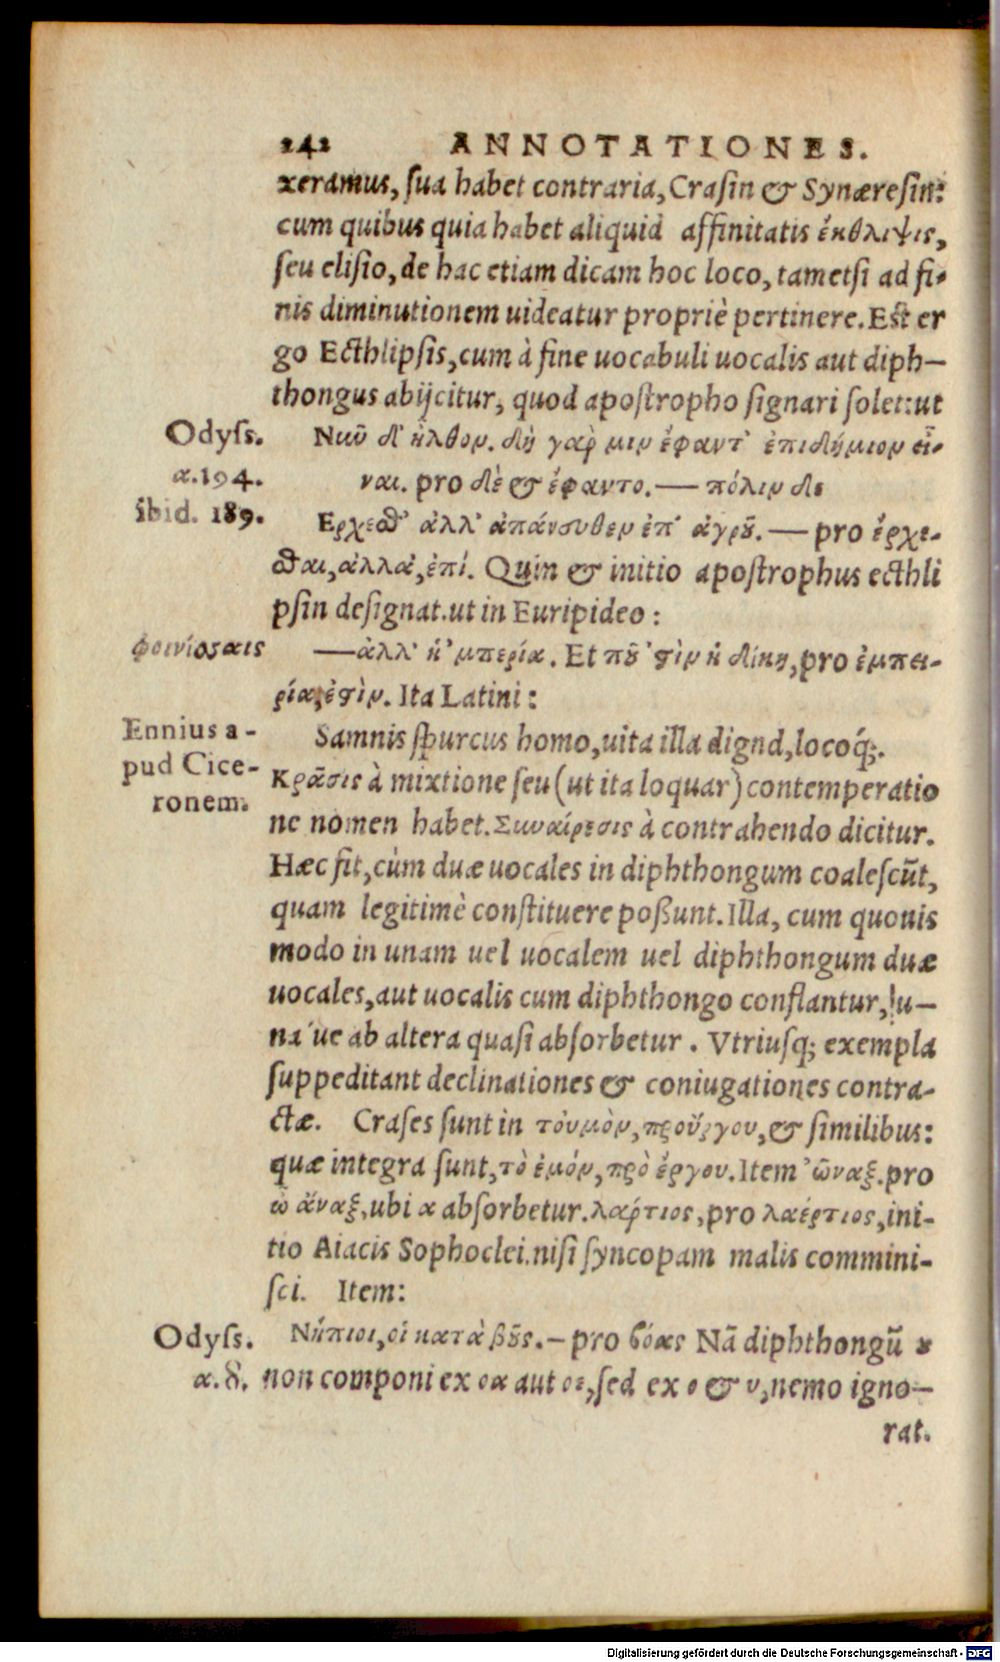 242 ANNOTATIONES.
xeramus, sua habet contraria, Crasin & Synæresin:
cum quibus quia habet aliquid affinitatis ἔκθλιψις,
seu elisio, de hac etiam dicam hoc loco, tametsi ad fi-
nis diminutionem uideatur propriè pertinere. Est er
go Ecthlipsis, cum à fine uocabuli uocalis aut diph-
thongus abijcitur, quod apostropho signari solet: ut
Odyss. α. 194.
Νῦν δ' ἦλθον. δὴ γάρ μιν ἔφαντ' ἐπιδήμιον εἶ-
ναι. pro δὲ & ἔφαντο. — πόλιν δε
ibid. 189.
Ερχεσθ' ἀλλ' ἀπάνευθεν ἐπ' ἀγροῦ. — pro ἔρχε-
σθαι, ἀλλὰ, ἐπί. Quin & initio apostrophus ecthli
psin designat. ut in Euripideo:
φοινίσσαις
— ἀλλ' ἡ 'μπερία. Et ποῦ 'στὶν ἡ δίκη, pro ἐμπει-
ρία, ἐστὶν. Ita Latini:
Ennius a-
pud Cice-
ronem.
Samnis spurcus homo, uita illa dignu', locoq́;.
Κρᾶσις à mixtione seu (ut ita loquar) contemperatio
ne nomen habet. Συναίρεσις à contrahendo dicitur.
Hæc fit, cùm duæ uocales in diphthongum coalescũt,
quam legitimè constituere poßunt. Illa, cum quouis
modo in unam uel uocalem uel diphthongum duæ
uocales, aut uocalis cum diphthongo conflantur, u-
na ue ab altera quasi absorbetur. Vtriusq; exempla
suppeditant declinationes & coniugationes contra-
ctæ. Crases sunt in τοὐμὸν, προὔργου, & similibus:
quæ integra sunt, τὸ ἐμόν, πρὸ ἔργου. Item ὦναξ. pro
ὦ ἄναξ, ubi α absorbetur. λαρτιος, pro λαέρτιος, ini-
tio Aiacis Sophoclei. nisi syncopam malis commini-
sci. Item:
Odyss. α. 8.
Νήπιοι, οἳ κατὰ βοῦς. — pro βόας Nã diphthongũ ου
non componi ex οα aut οε, sed ex ο & υ, nemo igno-
rat.
Digitalisierung gefördert durch die Deutsche Forschungsgemeinschaft - DFG